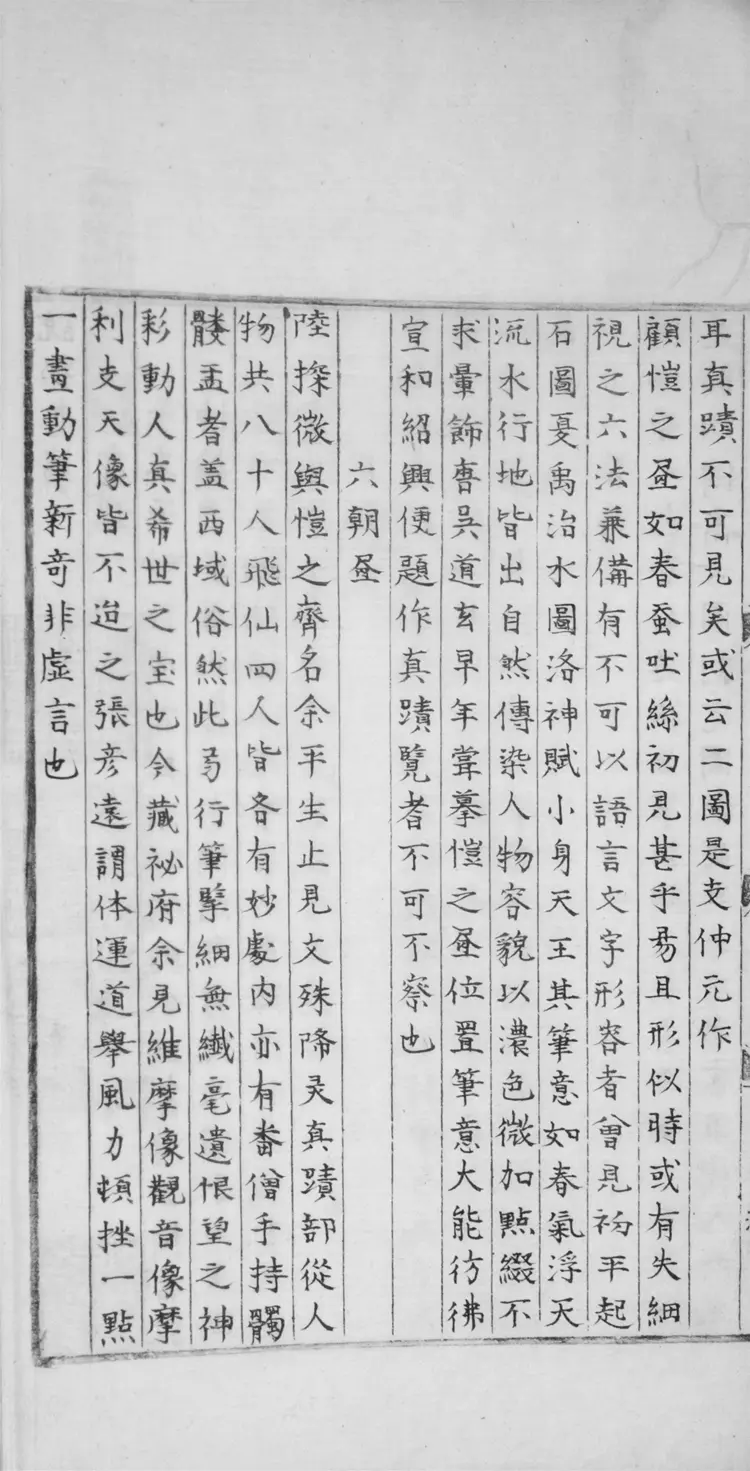 耳真蹟不可見矣或云二圖是支仲元作
顧愷之𦘕如春蚕吐絲初見甚平易且形似時或有失細
視之六法兼備有不可以語言文字形容者曾見初平起
石圖夏禹治水圖洛神賦小身天王其筆意如春氣浮天
流水行地皆出自然傳染人物容貌以濃色微加點綴不
求暈飾唐吳道玄早年甞摹愷之𦘕位置筆意大能彷彿
宣和紹興便題作真蹟覽者不可不察也
六朝𦘕
陸探微與愷之齊名余平生止見文殊降灵真蹟部從人
物共八十人飛仙四人皆各有妙處内亦有畨僧手持髑
髏盂者盖西域俗然此卷行筆緊細無纖毫遺恨望之神
彩動人真希世之宝也今藏祕府余見維摩像觀音像摩
利支天像皆不迨之張彦遠謂体運遒舉風力頓挫一點
一畫動筆新奇非虛言也